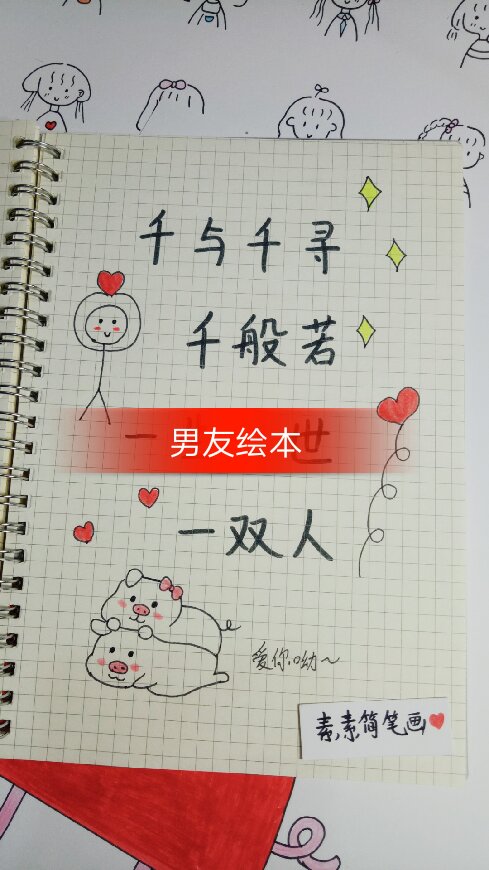 千与千寻
千般若
一 世
男友绘本
一双人
爱你呦~
素素简笔画